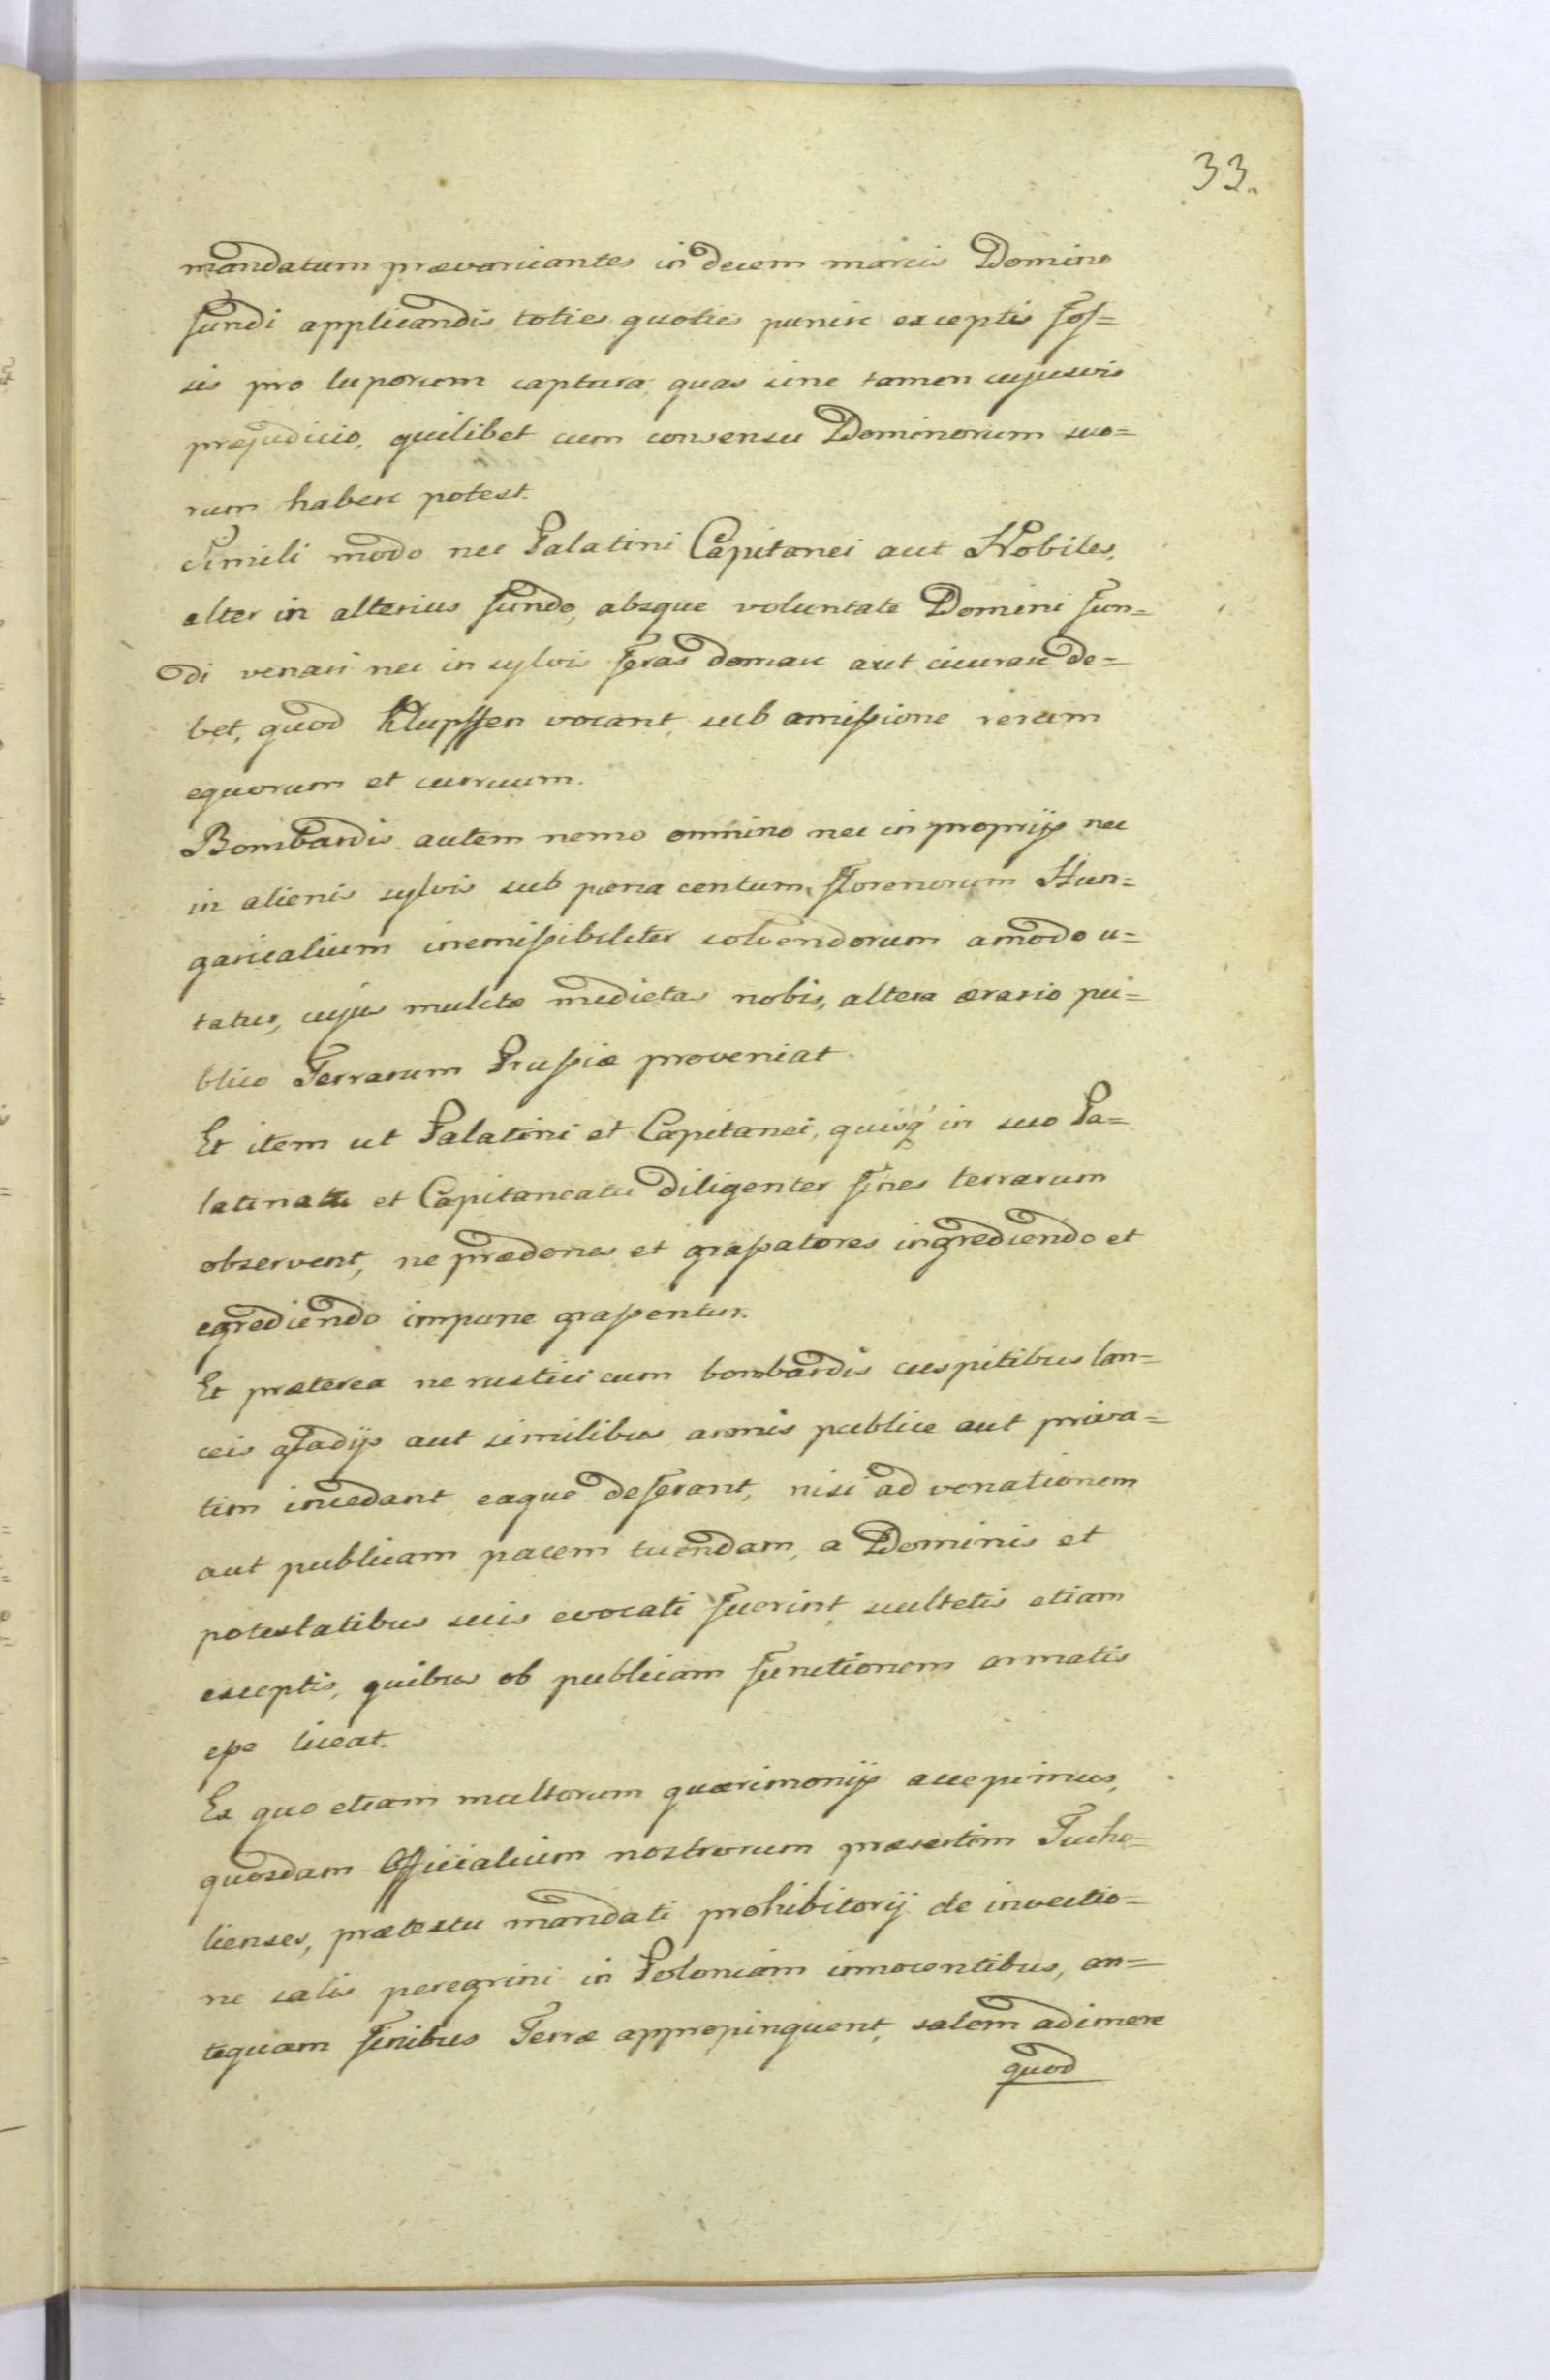 33.
mandatum prævaricantes in decem marcis Domino
fundi applicandis toties quoties punire exceptis fos=
sis pro luporum captura, quas sine tamen cujusvis
præjudicio, quilibet cum consensu Dominorum suo=
rum habere potest.
Simili modo nec Palatini Capitanei aut Nobiles,
alter in alterius fundo, absque voluntate Domini fun=
di venari nec in sylvis feras domare aut cicurare de=
bet, quod Klupffen vocant, sub amissione rerum
equorum et curruum.
Bombardis autem nemo omnino nec in proprijs nec
in alienis sylvis sub pœna centum, florenorum Hun=
garicalium irremissibiliter solvendorum amodo u=
tatur, cujus mulctæ medietas nobis, altera ærario pu=
blico Terrarum Prussiæ proveniat.
Et item ut Palatini et Capitanei, quisq́ in suo Pa=
latinatu et Capitaneatu diligenter fines terrarum
observent, ne prædones et grassatores ingrediendo et
egrediendo impune grassentur.
Et præterea ne rustici cum bombardis cuspitibus lan=
ceis gladijs aut similibus armis publice aut priva=
tim incedant eaque deferant, nisi ad venationem
aut publicam pacem tuendam, a Dominis et
potestatibus suis evocati fuerint, scultetis etiam
exceptis, quibus ob publicam functionem armatis
esse liceat.
Ex quo etiam multorum quærimonijs accepimus,
quosdam Officialium nostrorum præsertim Tucho=
lienses, prætextu mandati prohibitorij de invectio=
ne salis peregrini in Poloniam innocentibus, an=
tequam finibus Terræ appropinquent, salem adimere
quod